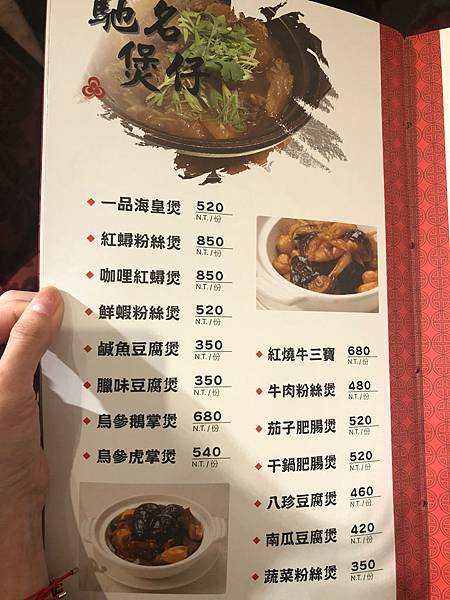 馳名
煲仔
一品海皇煲 520
N.T./份
紅蟳粉絲煲 850
N.T./份
咖哩紅蟳煲 850
N.T./份
鮮蝦粉絲煲 520
N.T./份
鹹魚豆腐煲 350
N.T./份
臘味豆腐煲 350
N.T./份
烏參鵝掌煲 680
N.T./份
烏參虎掌煲 540
N.T./份
紅燒牛三寶 680
N.T./份
牛肉粉絲煲 480
N.T./份
茄子肥腸煲 520
N.T./份
干鍋肥腸煲 520
N.T./份
八珍豆腐煲 460
N.T./份
南瓜豆腐煲 420
N.T./份
蔬菜粉絲煲 350
N.T./份